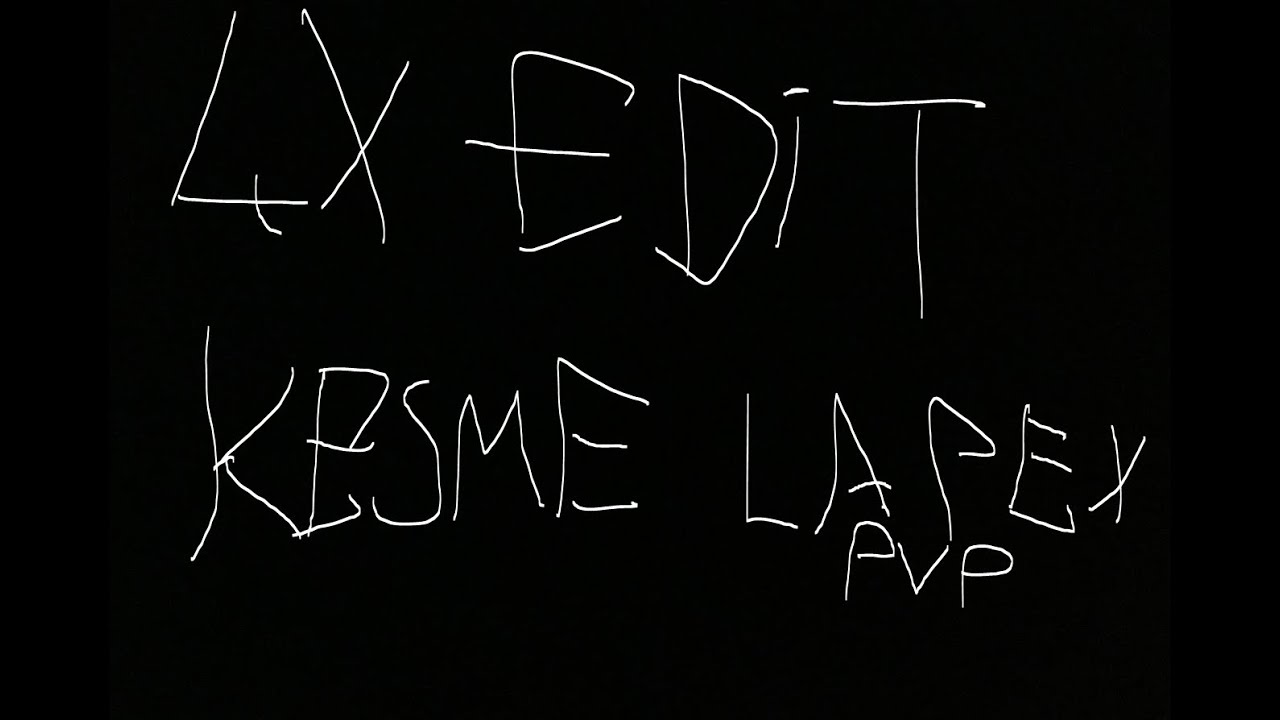 4X EDİT
KESME LAPEX
PVP